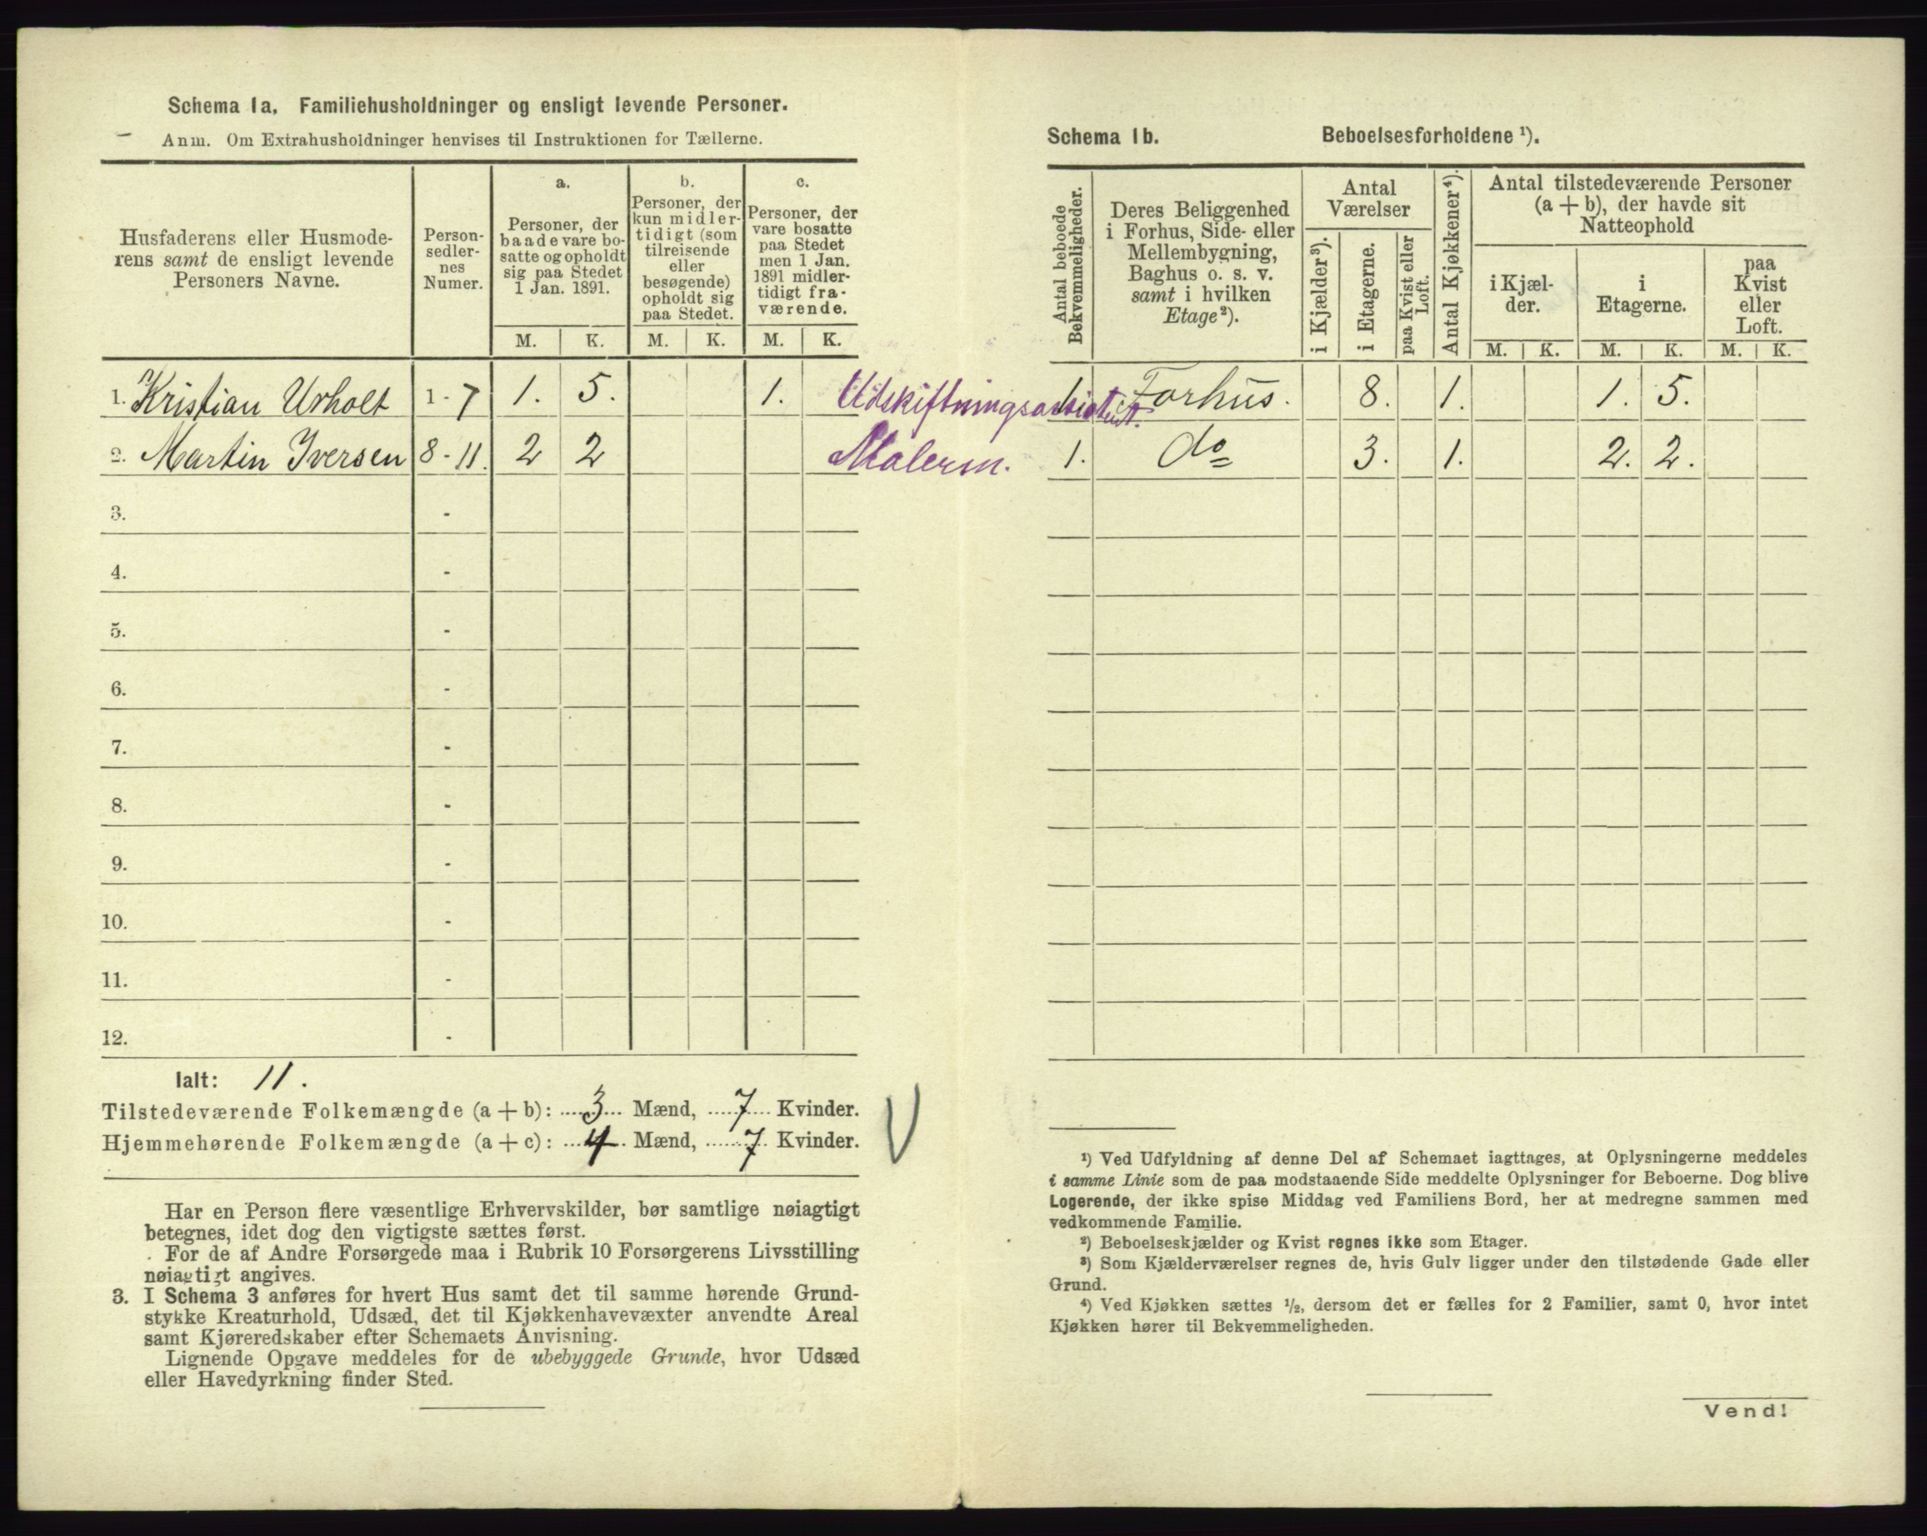 Schema 1a. Familiehusholdninger og ensligt levende Personer.
Anm. Om Extrahusholdninger henvises til Instruktionen for Tællerne.
Husfaderens eller Husmode-
rens samt de ensligt levende
Personers Navne.
Person-
sedler-
nes
Numer.
a.
Personer, der
baade vare bo-
satte og opholdt
sig paa Stedet
1 Jan. 1891.
b.
Personer, der
kun midler-
tidigt (som
tilreisende
eller
besøgende)
opholdt sig
paa Stedet.
c.
Personer, der
vare bosatte
paa Stedet
men 1 Jan.
1891 midler-
tidigt fra-
værende.
M. K. M. K. M. K.
1. Kristian Urholt 1 - 7 1. 5. 1. Udskiftningsassistent.
2. Martin Iversen 8 - 11. 2 2 Malerm.
3. -
4. -
5. -
6. -
7. -
8. -
9. -
10. -
11. -
12. -
Ialt: 11.
Tilstedeværende Folkemængde (a + b): 3 Mænd, 7 Kvinder.
Hjemmehørende Folkemængde (a + c): 4 Mænd, 7 Kvinder.
Har en Person flere væsentlige Erhvervskilder, bør samtlige nøiagtigt
betegnes, idet dog den vigtigste sættes først.
For de af Andre Forsørgede maa i Rubrik 10 Forsørgerens Livsstilling
nøiagtigt angives.
3. I Schema 3 anføres for hvert Hus samt det til samme hørende Grund-
stykke Kreaturhold, Udsæd, det til Kjøkkenhavevæxter anvendte Areal
samt Kjøreredskaber efter Schemaets Anvisning.
Lignende Opgave meddeles for de ubebyggede Grunde, hvor Udsæd
eller Havedyrkning finder Sted.
Schema 1b. Beboelsesforholdene ¹).
Antal beboede
Bekvemmeligheder.
Deres Beliggenhed
i Forhus, Side- eller
Mellembygning,
Baghus o. s. v.
samt i hvilken
Etage²).
Antal
Værelser
i Kjælder³).
i Etagerne.
paa Kvist eller
Loft.
Antal Kjøkkener⁴).
Antal tilstedeværende Personer
(a + b), der havde sit
Natteophold
i Kjæl-
der.
i
Etagerne.
paa
Kvist
eller
Loft.
M. K. M. K. M. K.
1. Forhus. 8. 1. 1. 5.
1. do 3. 1. 2. 2.
¹) Ved Udfyldning af denne Del af Schemaet iagttages, at Oplysningerne meddeles
i samme Linie som de paa modstaaende Side meddelte Oplysninger for Beboerne. Dog blive
Logerende, der ikke spise Middag ved Familiens Bord, her at medregne sammen med
vedkommende Familie.
²) Beboelseskjælder og Kvist regnes ikke som Etager.
³) Som Kjælderværelser regnes de, hvis Gulv ligger under den tilstødende Gade eller
Grund.
⁴) Ved Kjøkken sættes ½, dersom det er fælles for 2 Familier, samt 0, hvor intet
Kjøkken hører til Bekvemmeligheden.
Vend!